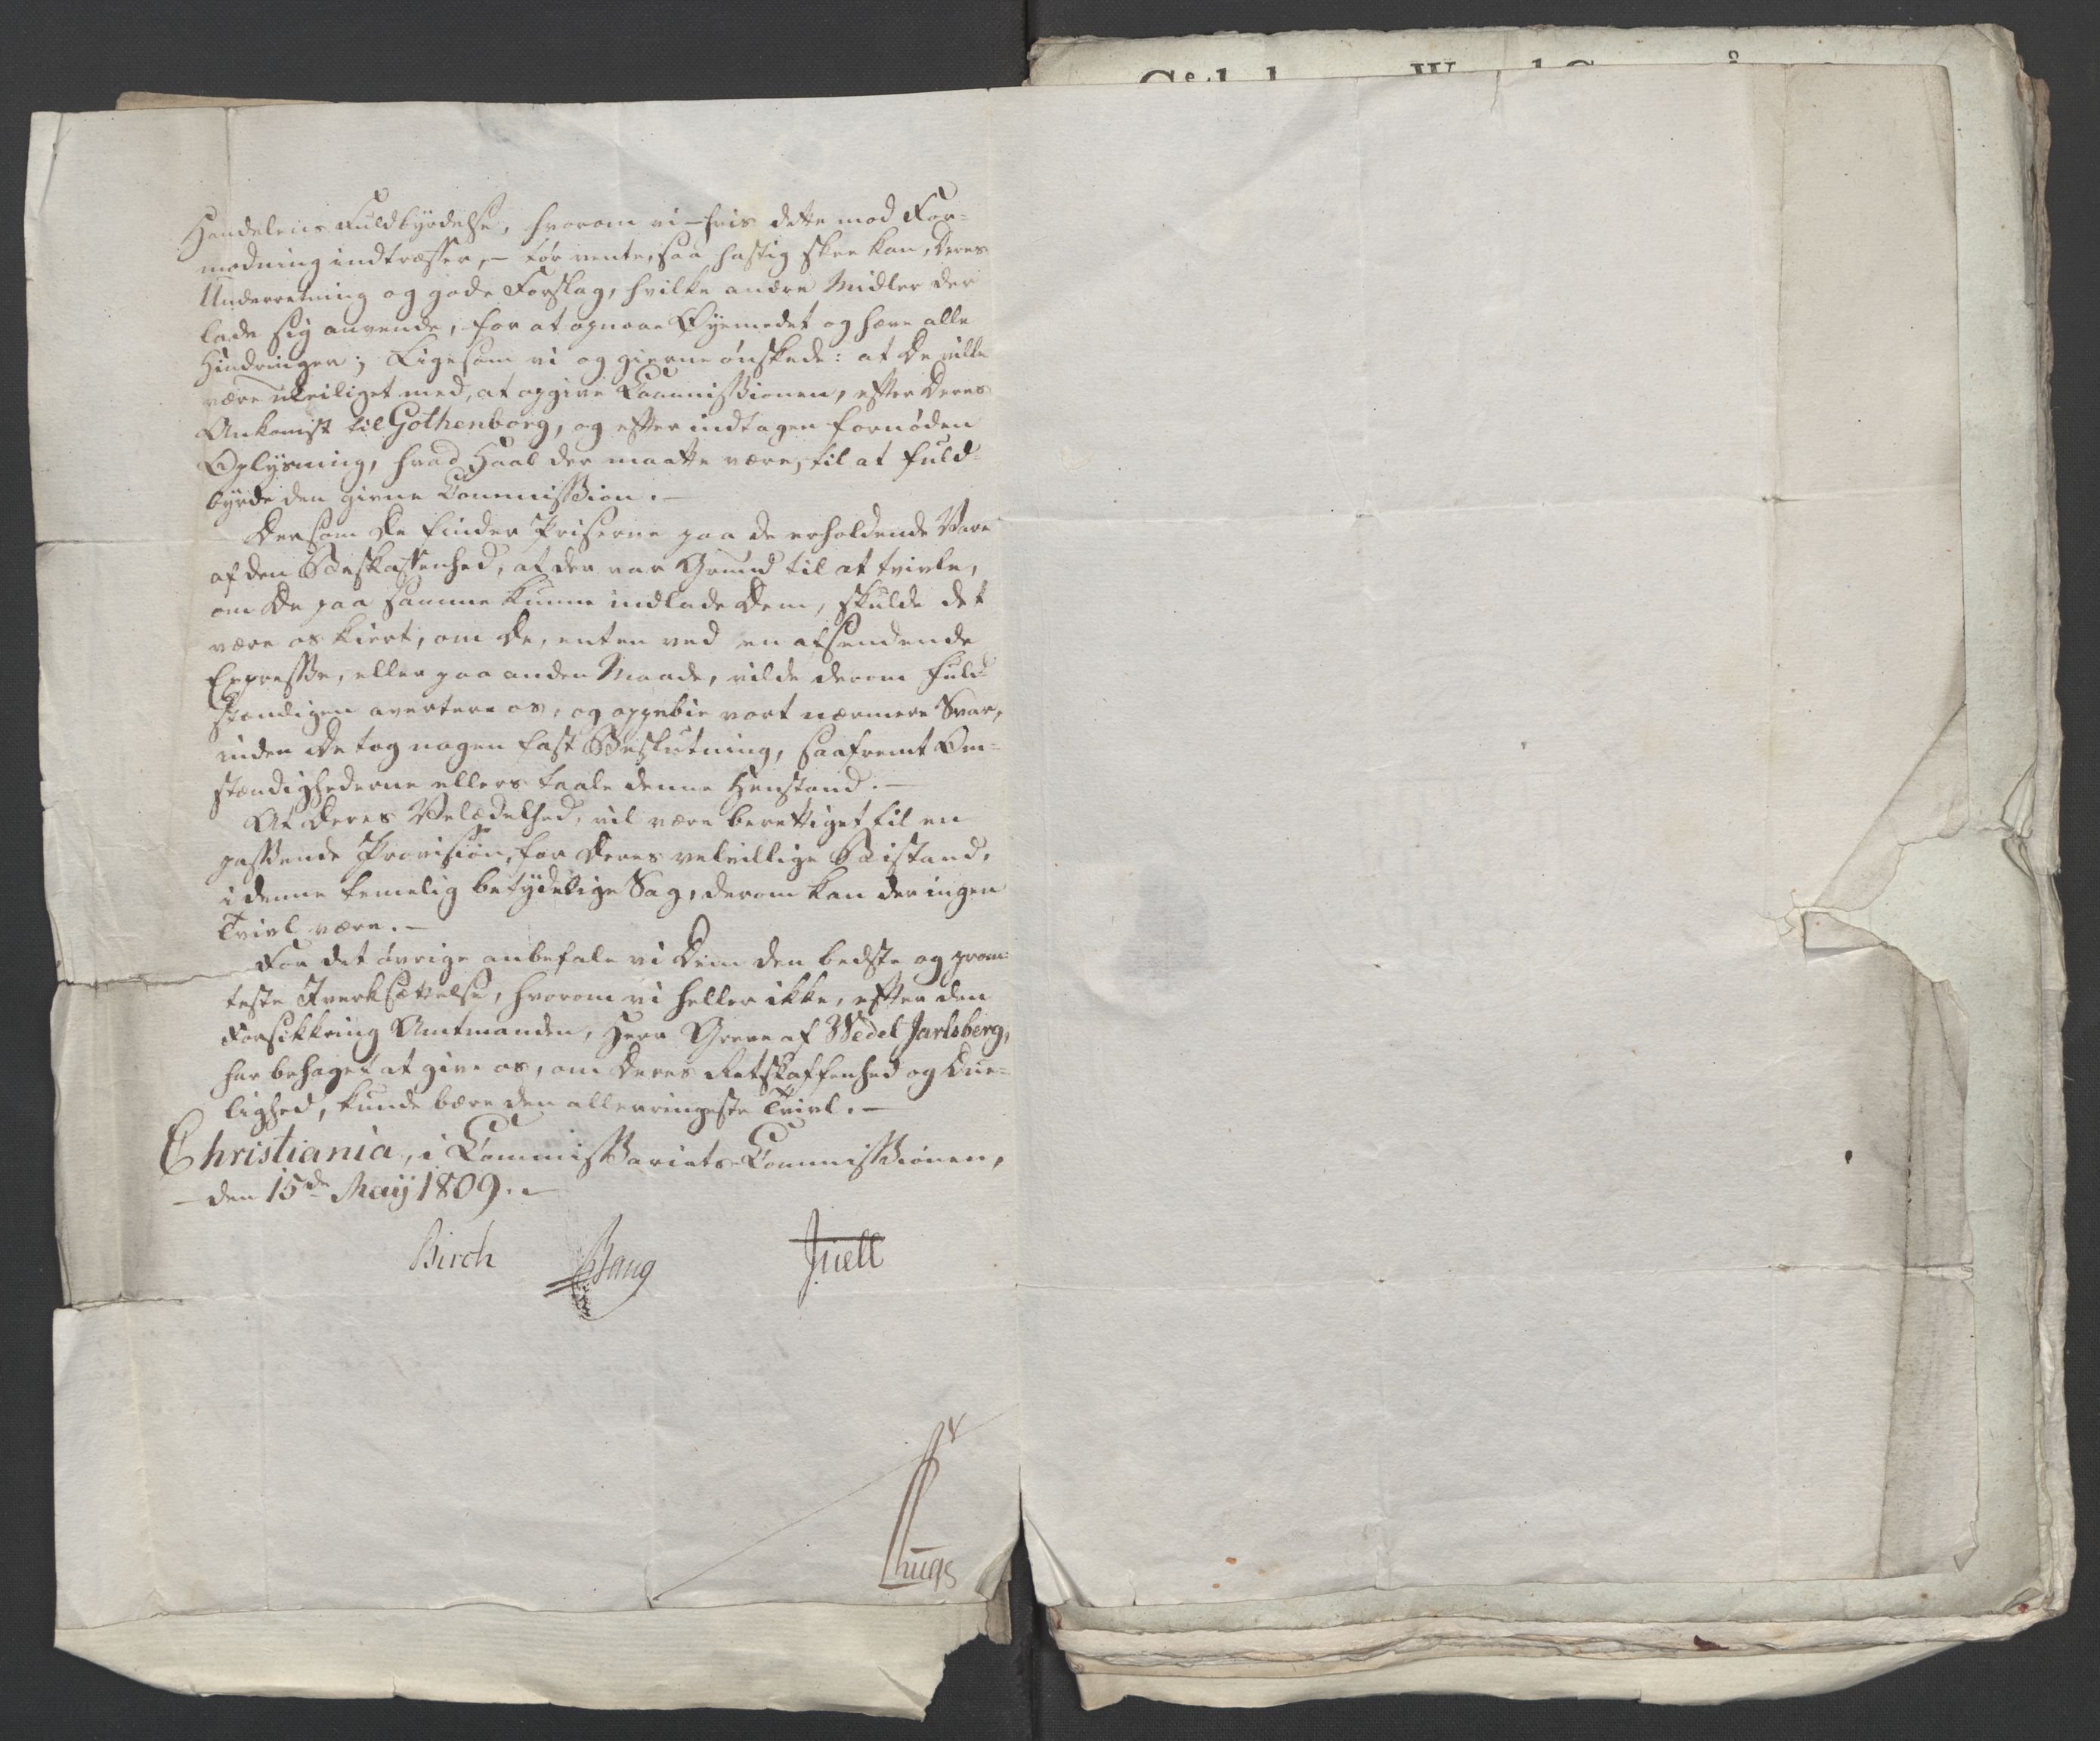 Handelens Fuldbyrdelse, hvorom vi – hvis dette mod For-
modning indtræffer, – tør vente, saa hastig skee kan, Deres
Underretning og gode Forslag, hvilke andre Midler der
lade sig anvende, for at opnaae Øyemedet og hæve alle
Hindringer; Ligesom vi og gierne ønskede: at De ville
være uleiliget med, at opgive Commissionen, efter Deres
Ankomst til Gothenborg, og efter indtagen fornøden
Oplysning, hvad Haab der maatte være, til at fuld-
byrde den givne Commission. –
Dersom De finder Priserne paa de erholdende Vare
af den Beskaffenhed, at der var Grund til at tvivle,
om De paa samme kunne indlade Dem, skulde det
være os kiert, om De, enten ved en afsendende
Expresse, eller paa anden Maade, vilde derom fuld-
stændigen avertere os, og oppebie vort nærmere Svar,
inden De tog nogen fast Beslutning, saafremt Om-
stændighederne ellers taale denne Henstand. –
At Deres Velædelhed, vil være berettiget til en
passende Provision, for Deres velvillige Bistand,
i denne temelig betydelige Sag, derom kan der ingen
Tvivl være. –
For det øvrige anbefale vi Dem den bedste og prom-
teste Iverksættelse, hvorom vi heller ikke, efter den
Forsikkring Amtmanden, Herr Greve af Wedel Jarlsberg,
har behaget at give os, om Deres Retskaffenhed og Due-
lighed, kunde bære den allerringeste Tvivl. –
Christiania, i Commissariats-Commissionen,
– den 15de Maij 1809. –
Birch Baug Juell